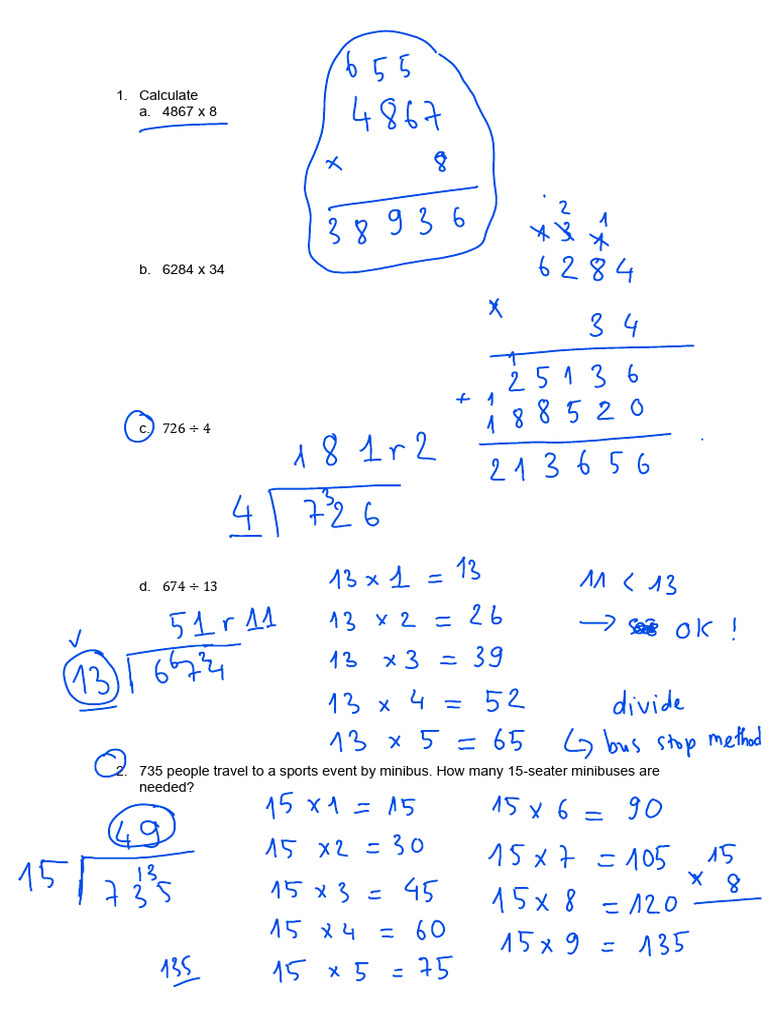 1. Calculate
a. 4867 x 8
6 5 5
4867
× 8
3 8 9 3 6
b. 6284 x 34
2 1
1 3 1
6 2 8 4
× 3 4
1
2 5 1 3 6
+ 1
1 8 8 5 2 0
2 1 3 6 5 6
c. 726 ÷ 4
1 8 1 r 2
4 7 ³2 6
d. 674 ÷ 13
51 r 11
✓
13 6 ⁶7 ²4
13 × 1 = 13
13 × 2 = 26
13 × 3 = 39
13 × 4 = 52
13 × 5 = 65
11 < 13
→ OK !
divide
↳ bus stop method
2. 735 people travel to a sports event by minibus. How many 15-seater minibuses are
needed?
49
15 7 3 ¹³5
135
15 × 1 = 15
15 × 2 = 30
15 × 3 = 45
15 × 4 = 60
15 × 5 = 75
15 × 6 = 90
15 × 7 = 105
15 × 8 = 120
15 × 9 = 135
15
× 8